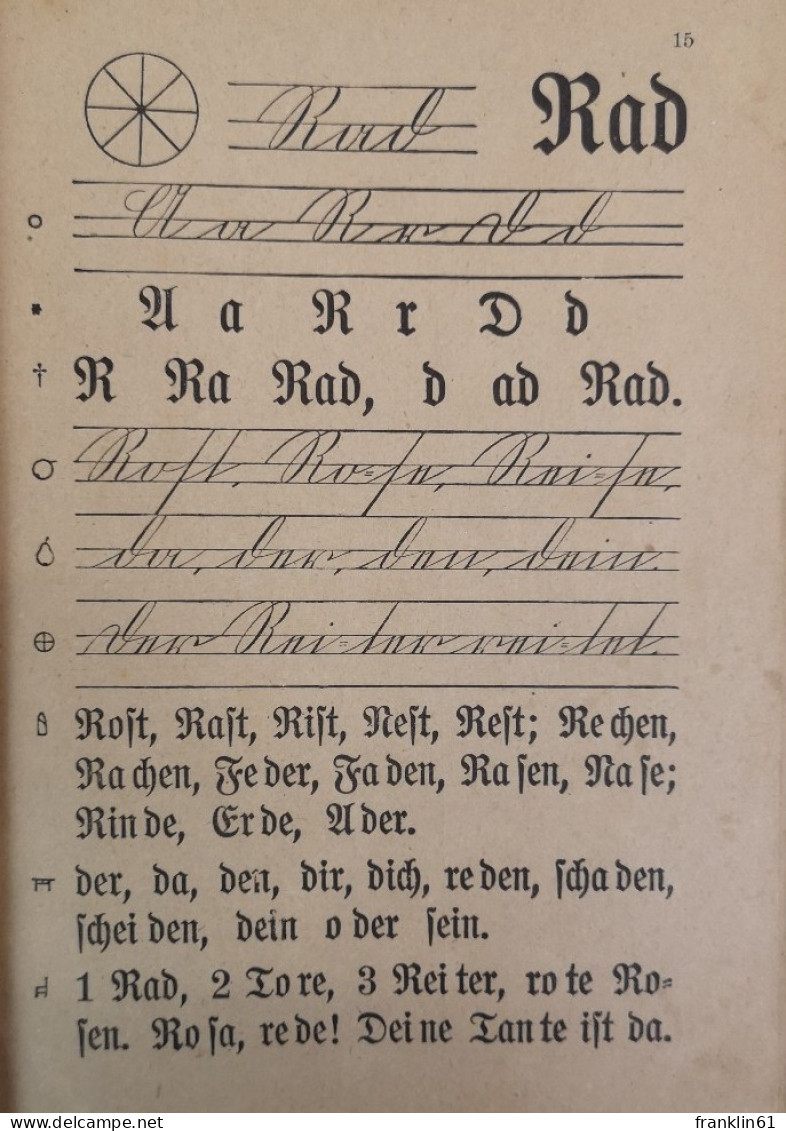 15
Rad Rad
A a R r D d
A a R r D d
R Ra Rad, d ad Rad.
Rost, Ro=se, Rei=se,
da, der, den, dein.
Der Rei=ter rei=tet.
Roſt, Raſt, Riſt, Neſt, Reſt; Re chen,
Ra chen, Fe der, Fa den, Ra ſen, Na ſe;
Rin de, Er de, A der.
der, da, den, dir, dich, re den, ſcha den,
ſchei den, dein o der ſein.
1 Rad, 2 To re, 3 Rei ter, ro te Ro=
ſen. Ro ſa, re de! Dei ne Tan te iſt da.
franklin61